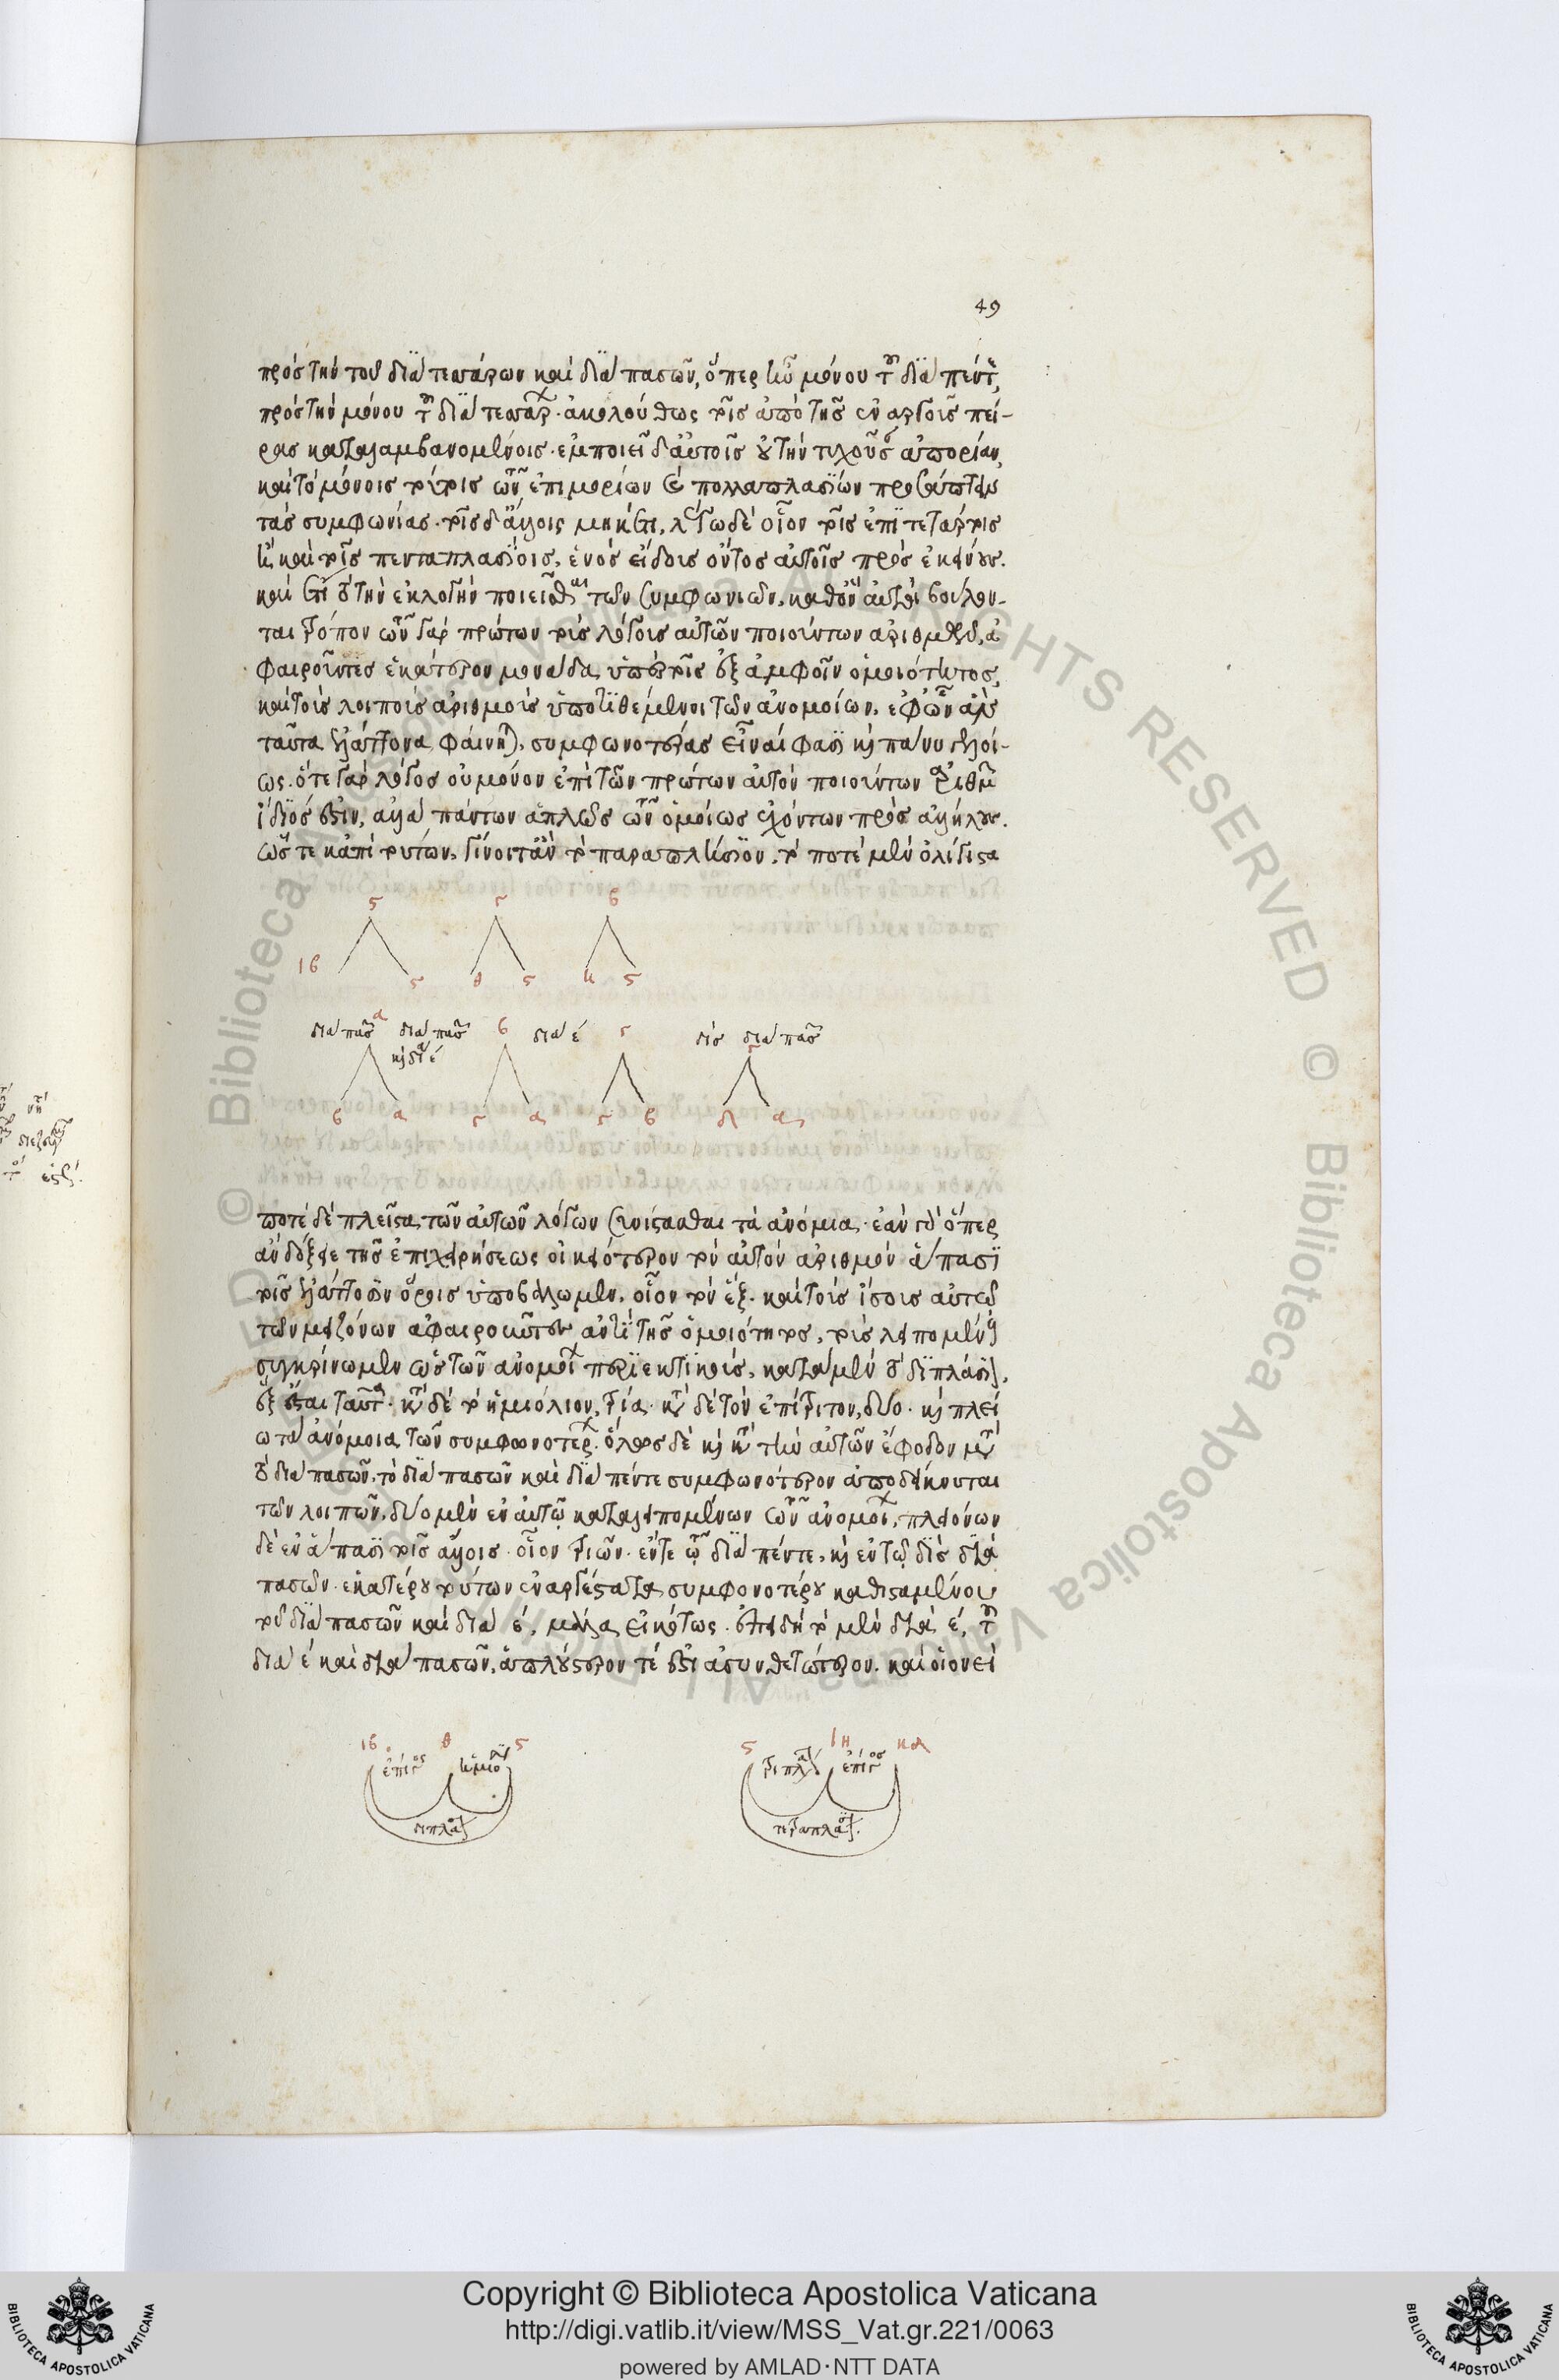 49
πρὸς τὴν τοῦ διὰ τεσσάρων καὶ διὰ πασῶν, ὅπερ ἦν μόνου τοῦ διὰ πέντε,
πρὸς τὴν μόνου τοῦ διὰ τεσσάρων. ἀκολούθως τοῖς ἀπὸ τῆς ἐναργοῦς πεί-
ρας καταλαμβανομένοις. ἐμποιεῖ δ' αὐτοῖς οὐ τὴν τυχοῦσαν ἀπορίαν,
καὶ τὸ μόνοις τούτοις τῶν ἐπιμορίων καὶ πολλαπλασίων προσάπτειν
τὰς συμφωνίας. τοῖς δ' ἄλλοις μηκέτι, λέγω δὲ οἷον τοῖς ἐπιτετάρτοις
ἢ καὶ τοῖς πενταπλασίοις, ἑνὸς εἴδους ὄντος αὐτοῖς πρὸς ἐκείνους.
καὶ ἔτι τὸ τὴν ἐκλογὴν ποιεῖσθαι τῶν συμφωνιῶν, καθ' ὃν αὐτοὶ βούλον-
ται τρόπον τῶν γὰρ πρώτων τοὺς λόγους αὐτῶν ποιούντων ἀριθμῶν, ἀ
φαιροῦντες ἑκατέρου μονάδα, ὑπὲρ τῆς ἐξ ἀμφοῖν ὁμοιότητος,
καὶ τοὺς λοιποὺς ἀριθμοὺς ὑποτιθέμενοι τῶν ἀνομοίων, ἐφ' ὧν ἂν
ταῦτα ἐλάττονα φαίνηται, συμφωνοτέρας εἶναί φασι καὶ πάνυ γελοί-
ως. ὅτε γὰρ λόγος οὐ μόνον ἐπὶ τῶν πρώτων αὐτὸν ποιούντων ἀριθμῶν
ἴδιός ἐστιν, ἀλλὰ πάντων ἁπλῶς τῶν ὁμοίως ἐχόντων πρὸς ἀλλήλους.
ὥστε κἀπὶ τούτων, γίνοιτ' ἂν τὸ παραπλήσιον, τὸ ποτὲ μὲν ὀλίγιστα
ϛ γ β
ιβ ϛ θ ϛ η ϛ
διὰ πασῶν α διὰ πασῶν β διὰ ε γ δὶς διὰ πασῶν
καὶ διὰ ε
β α γ α γ β δ α
ποτὲ δὲ πλεῖστα τῶν αὐτῶν λόγων συνίστασθαι τὰ ἀνόμια. ἐὰν γοῦν ὅπερ
ἂν δόξειε τῆς ἐπιχειρήσεως οἰκειότερον τὸν αὐτὸν ἀριθμὸν ἅπασι
τοῖς ἐλάττοσιν ὅροις ὑποβάλωμεν, οἷον τὸν ἕξ. καὶ τοὺς ἴσους αὐτῷ
τῶν μειζόνων ἀφαιροῦντες ἀντὶ τῆς ὁμοιότητος, τοὺς λειπομένους
συγκρίνωμεν ὡς τῶν ἀνομοίων περιεκτικούς, κατὰ μὲν τὸ διπλάσιον,
ἓξ ἔσται ταῦτα. κατὰ δὲ τὸ ἡμιόλιον, τρία. κατὰ δὲ τὸν ἐπίτριτον, δύο. καὶ πλεί
ω τὰ ἀνόμοια τῶν συμφωνοτέρων. ὅλως δὲ καὶ κατὰ τὴν αὐτῶν ἔφοδον μετὰ
τὸ διὰ πασῶν, τὸ διὰ πασῶν καὶ διὰ πέντε συμφωνότερον ἀποδείκνυται
τῶν λοιπῶν. δύο μὲν ἐν αὐτῷ καταλειπομένων τῶν ἀνομοίων, πλειόνων
δὲ ἐν ἅπασι τοῖς ἄλλοις. οἷον τριῶν. ἔν τε τῷ διὰ πέντε, καὶ ἐν τῷ δὶς διὰ
πασῶν. ἑκατέρου τούτων ἐναργέστατα συμφονοτέρου καθισταμένου
τοῦ διὰ πασῶν καὶ διὰ ε, μάλα εἰκότως. ἐπειδὴ τὸ μὲν διὰ ε, τοῦ
διὰ ε καὶ διὰ πασῶν, ἁπλούστερον τέ ἐστι ἀσυνθετώτερον. καὶ οἱονεὶ
ιβ θ ϛ
ἐπίγος ἡμιόλ
διπλάσ
ϛ ιη κδ
τριπλάσ ἐπίγος
τετραπλάσ
Copyright © Biblioteca Apostolica Vaticana
http://digi.vatlib.it/view/MSS_Vat.gr.221/0063
powered by AMLAD·NTT DATA
BIBLIOTECA APOSTOLICA VATICANA
BIBLIOTECA APOSTOLICA VATICANA